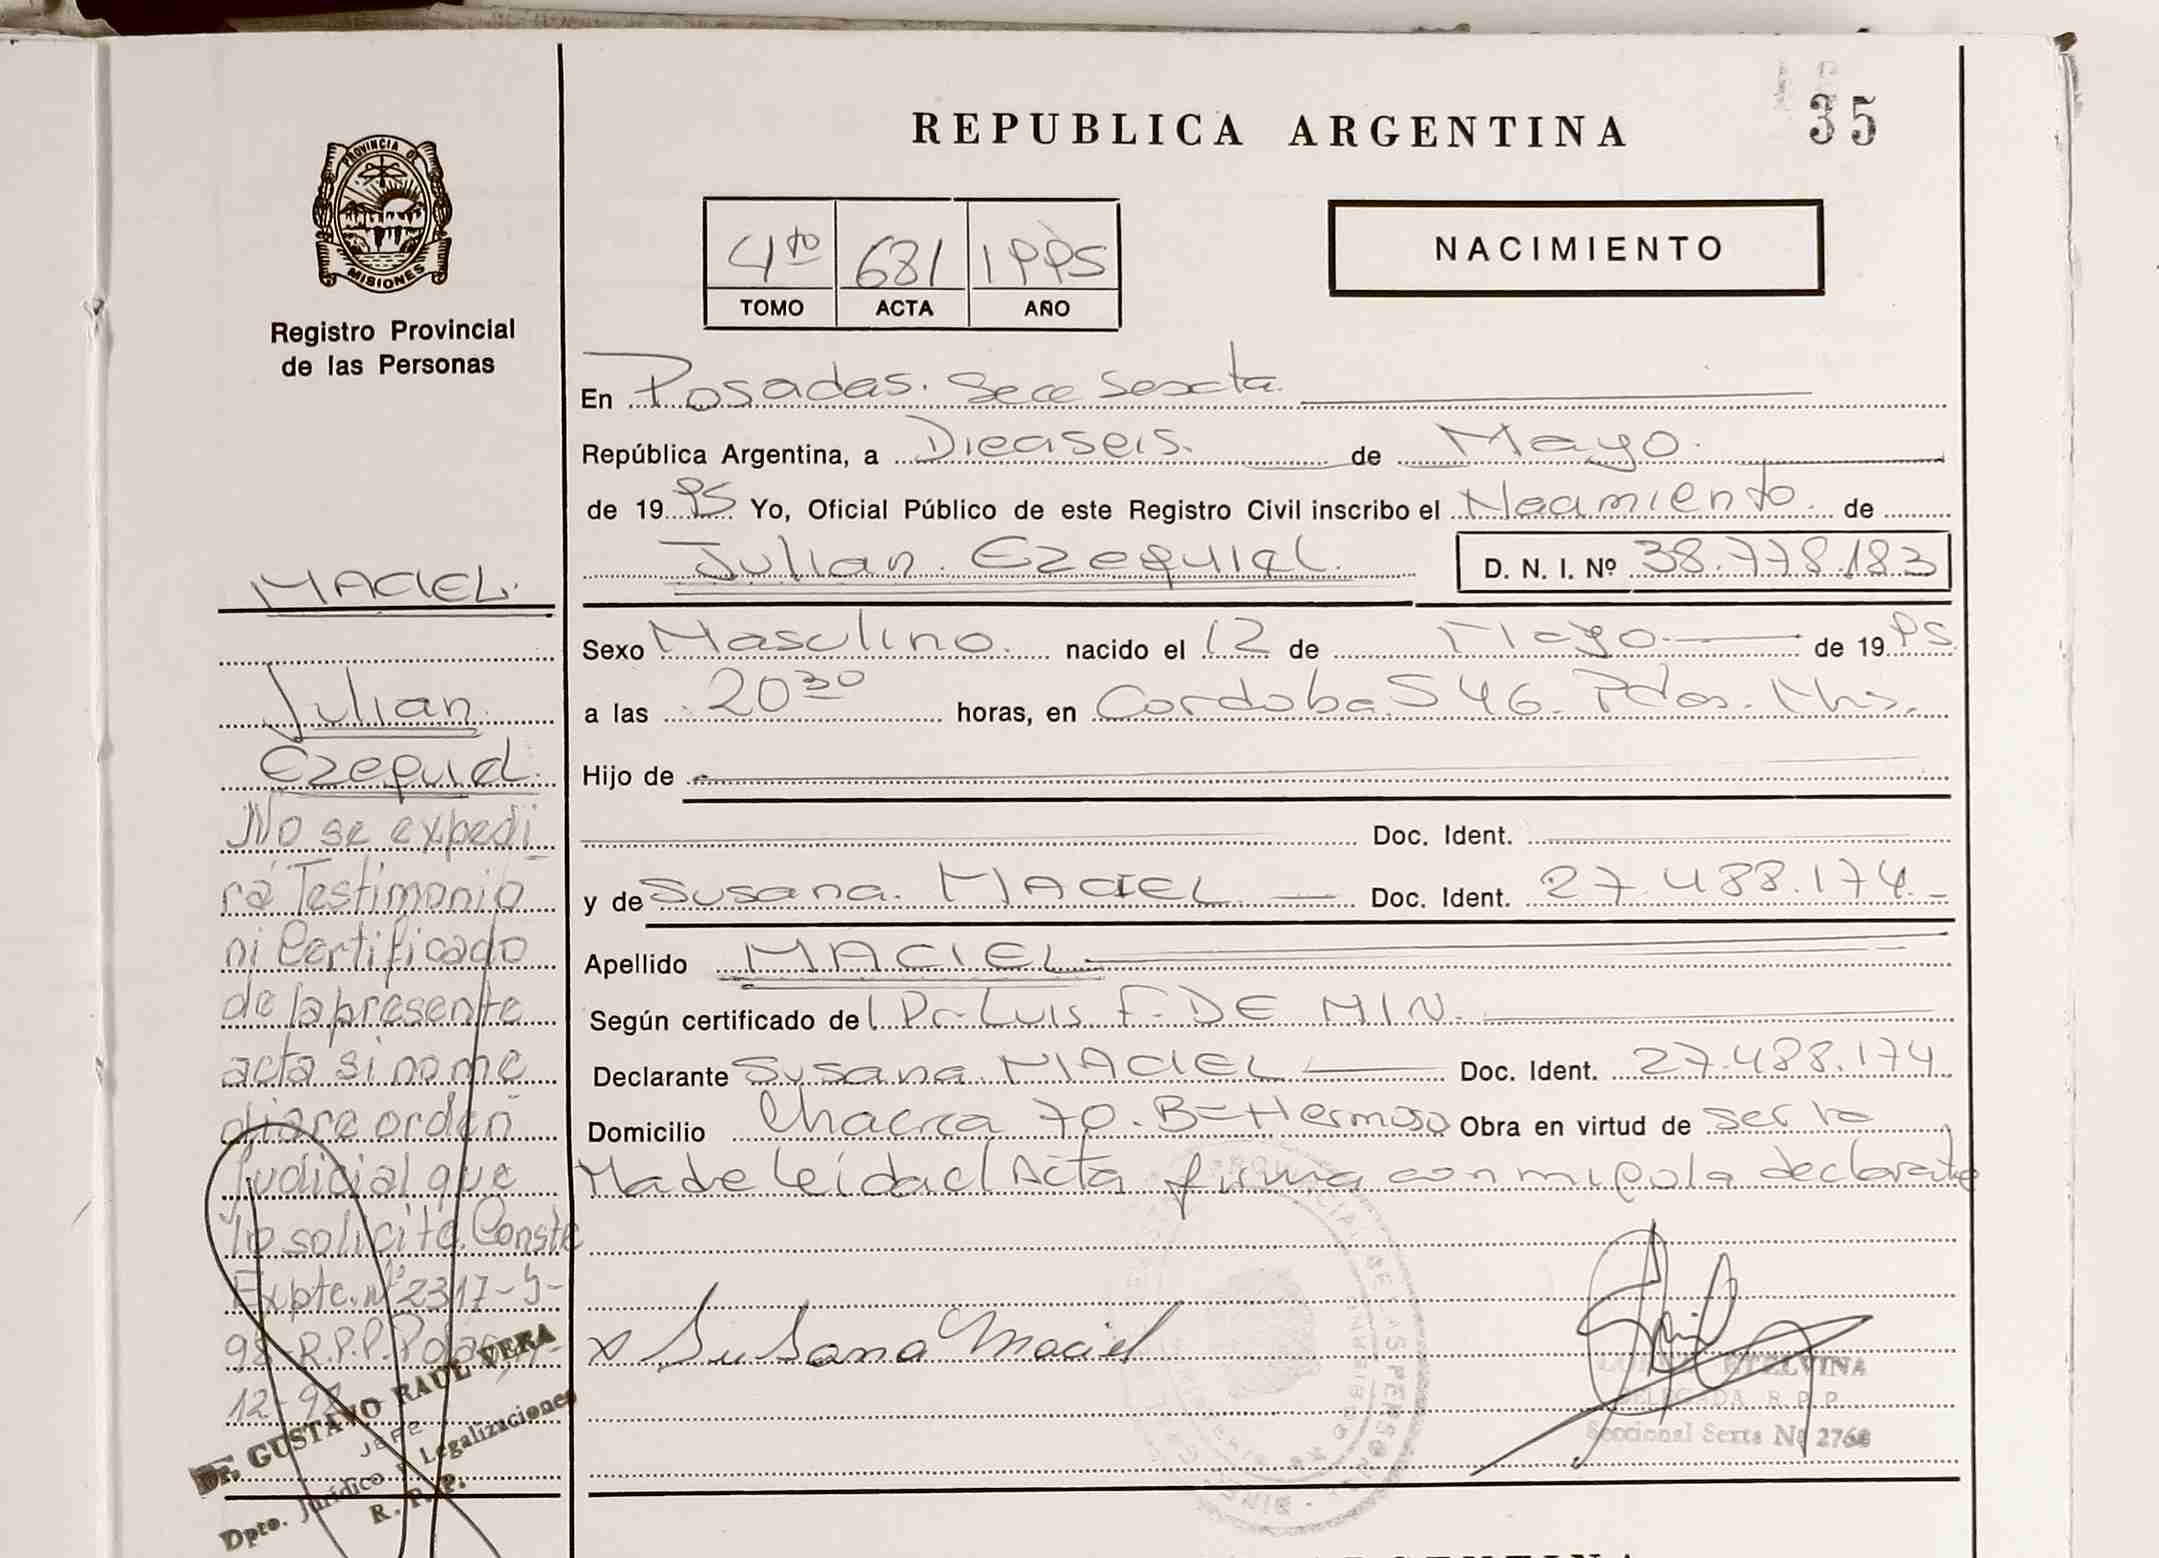 REPUBLICA ARGENTINA
35
PROVINCIA DE
MISIONES
Registro Provincial
de las Personas
4to 681 1995
TOMO ACTA AÑO
NACIMIENTO
En Posadas. Secc Sexta
República Argentina, a Dieciseis. de Mayo.
de 1995 Yo, Oficial Público de este Registro Civil inscribo el Nacimiento de
Julian Ezequiel. D. N. I. Nº 38.778.183
Sexo Masculino. nacido el 12 de Mayo de 1995
a las 20 30 horas, en Cordoba 546. Pdas. Mns.
Hijo de
Doc. Ident.
y de Susana. MACIEL Doc. Ident. 27.488.174
Apellido MACIEL
Según certificado del Dr. Luis F. DE MIN.
Declarante Susana MACIEL Doc. Ident. 27.488.174
Domicilio Chacra 70. Bº Hermoso Obra en virtud de ser la
Madre Leida el Acta firma conmigo la declarante
x Susana Maciel
ETELVINA
DELEGADA R.P.P.
Seccional Sexta Nº 2768
MACIEL.
Julian
Ezequiel.
No se expedi
rá Testimonio
ni Certificado
de la presente
acta si no me
diare orden
judicial que
lo solicite. Conste
Expte. nº 2317-S-
98 R.P.P. Pdas,
12-98
Dr. GUSTAVO RAUL VERA
JEFE
Dpto. Jurídico y Legalizaciones
R. P. P.